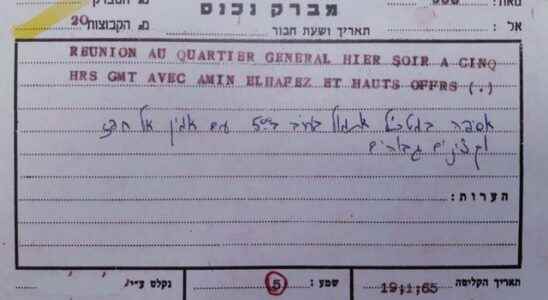 מברק נכנס
אל : מס הקבוצות 20 תאריך ושעת חבור
REUNION AU QUARTIER GENERAL HIER SOIR A CINQ
HRS GMT AVEC AMIN ELHAFEZ ET HAUTS OFFRS (.)
אתמול בערב ב 5 עם אמין אל חפז
וקצינים גבוהים
הערות :
תאריך הקליטה 19:1:65 שמע : 5 נקלט ע״י